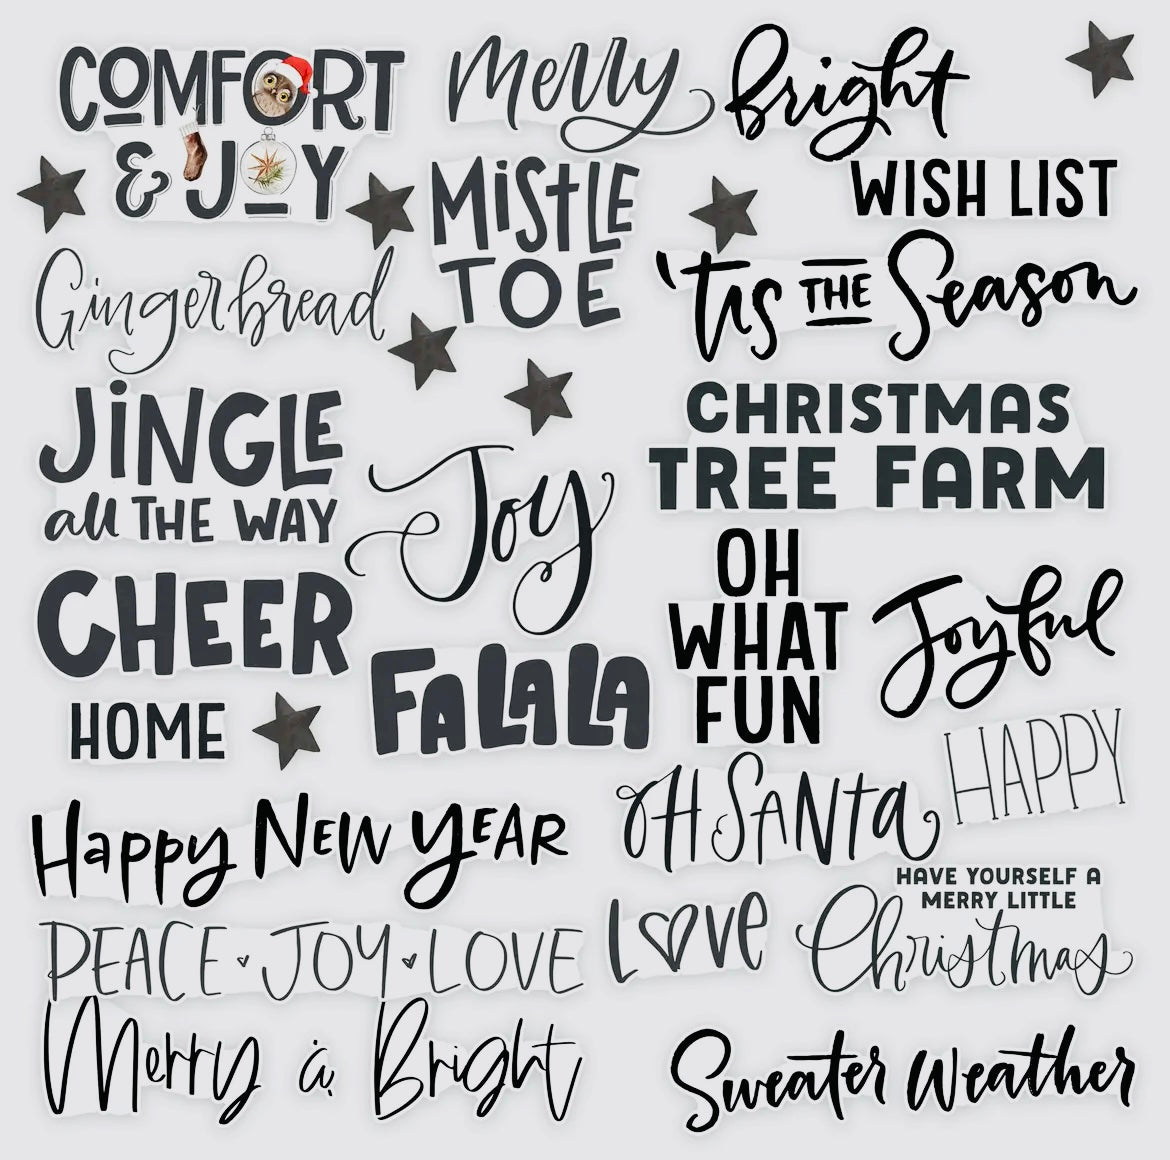 COMFORT
& JOY
merry
bright
WISH LIST
MiStLE
TOE
Gingerbread
'tis THE Season
JiNGLE
all THE WAY
CHRISTMAS
TREE FARM
Joy
OH
WHAT
FUN
Joyful
CHEER
HOME
FaLaLa
HAPPY
OH SANta
Happy NEW YEAR
HAVE YOURSELF A
MERRY LITTLE
Christmas
LOVE
PEACE JOY LOVE
Merry & Bright
Sweater Weather